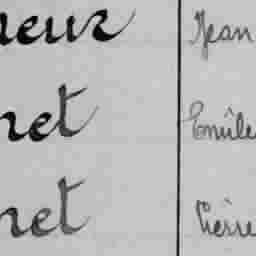 neur Jean
net Emile
net Pierre